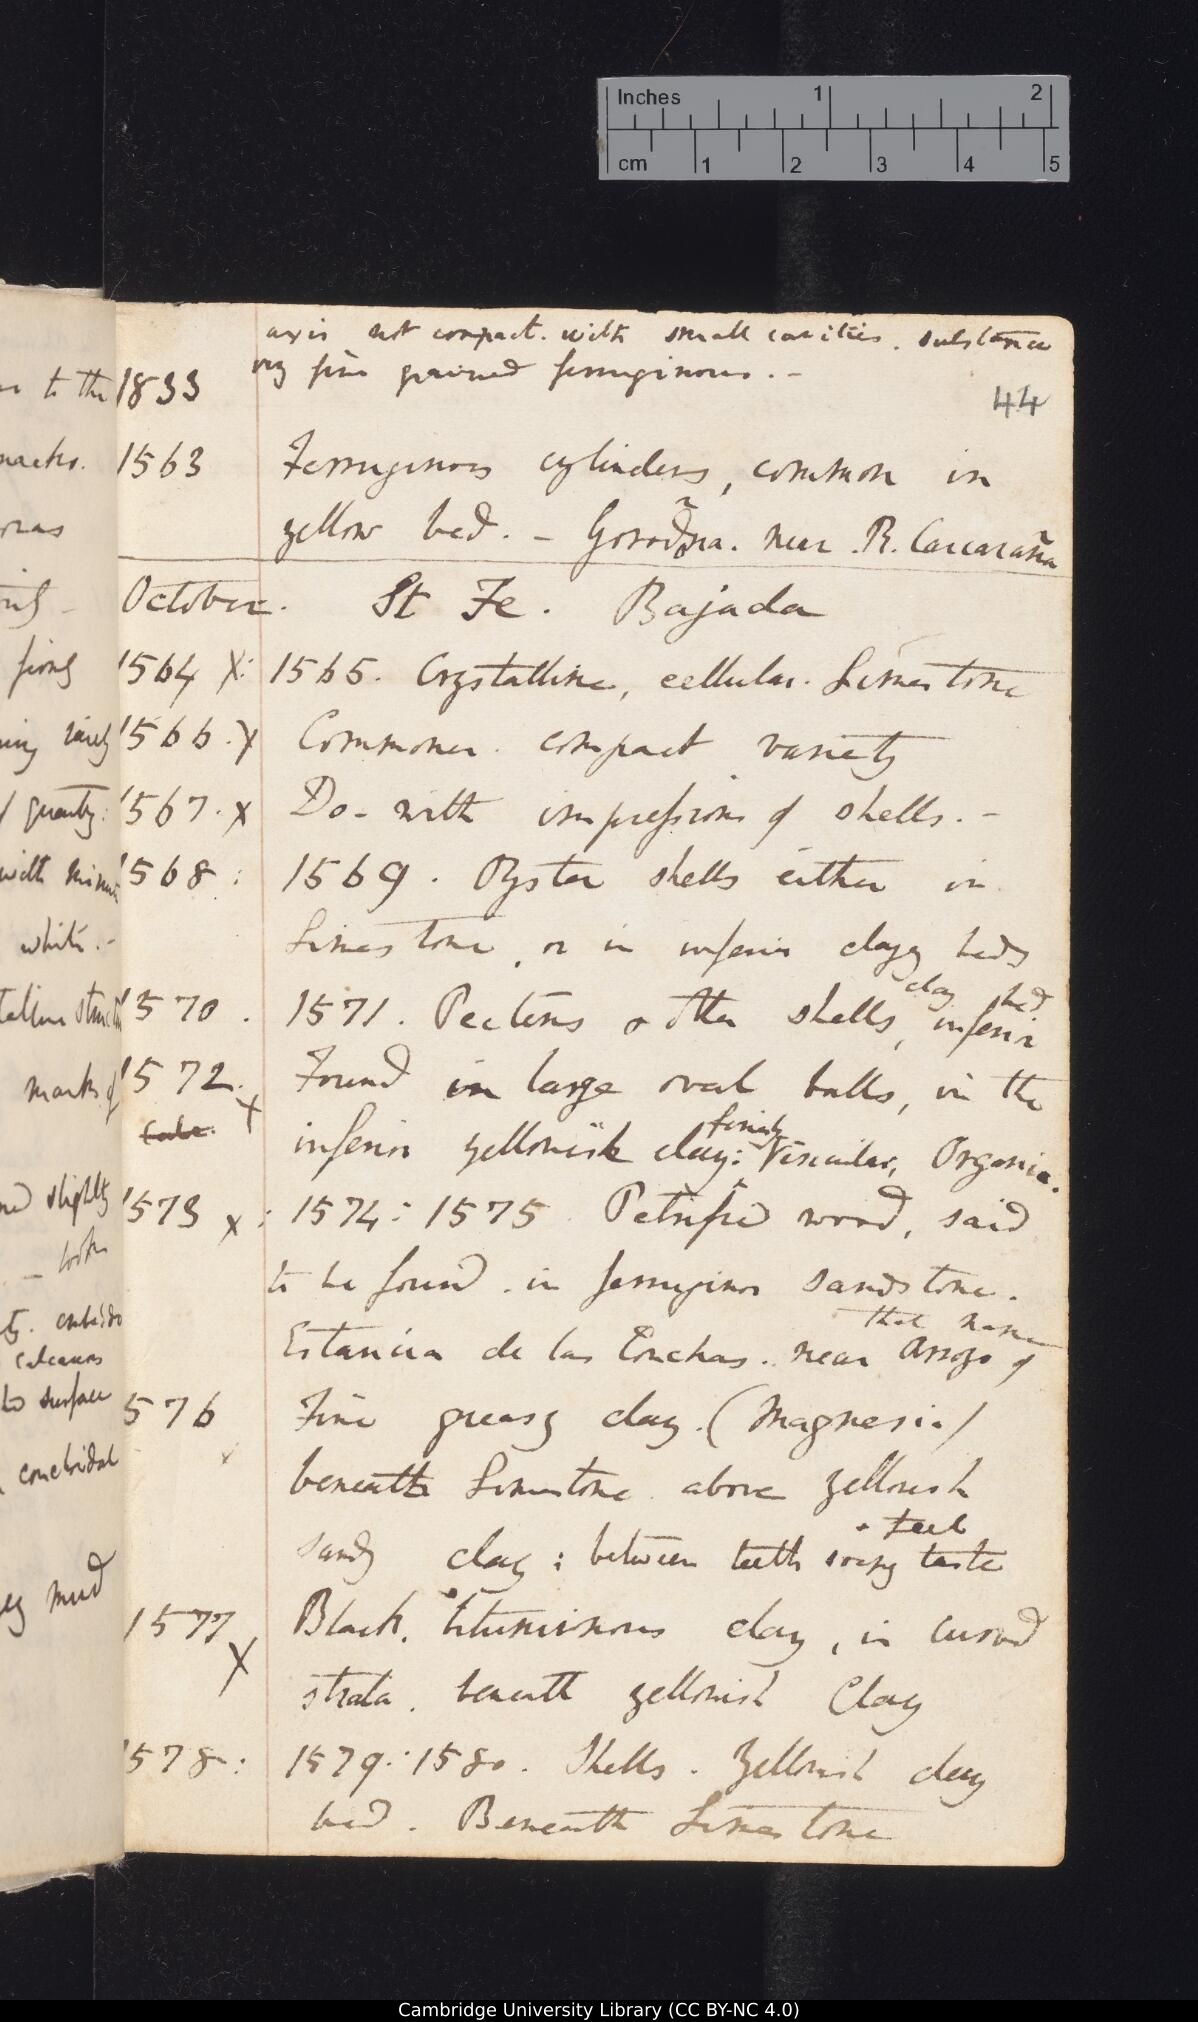 Inches 1 2
cm 1 2 3 4 5
axis not compact. with small cavities. substance
very fine grained ferruginous. –
1833
44
1563 Ferruginous cylinders, common in
yellow bed. – Gorodña. near. R. Carcaraña
October. St Fe. Bajada
1564 X: 1565. Crystalline, cellular. Limestone
1566. X Commoner. compact variety
1567. X Do – with impressions of shells. –
1568: 1569. Oyster shells either in
Limestone, or in inferior clayey beds
clay bed
1570. 1571. Pectens & other shells, inferior
1572. X Found in large oval balls, in the
Calc.
finely
inferior yellowish clay: Vesicular, Organic.
1573 X: 1574: 1575 Petrified wood, said
to be found. in ferruginous sandstone.
that name
Estancia de las Conchas. near Arroyo of
1576 Fine greasy clay. (Magnesia)
X
beneath Limestone above yellowish
+ feel
sandy clay: between teeth soapy taste
1577 X Black, bituminous clay, in curved
strata. beneath yellowish Clay
1578: 1579: 1580. Shells. Yellowish clay
bed. Beneath Limestone
to the
rarely
quantity:
with minute
white. –
marks of
slightly
calcareous
to surface
conchoidal
mud
Cambridge University Library (CC BY-NC 4.0)